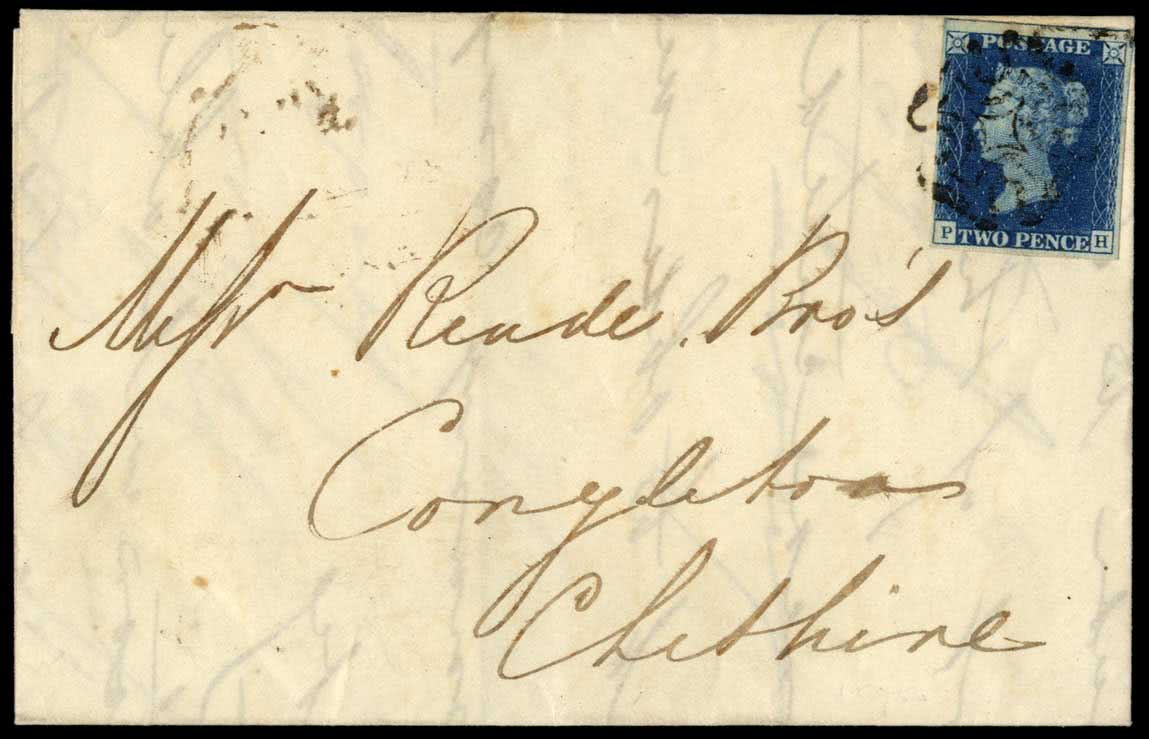 POSTAGE
P TWO PENCE H
Messrs Reade Bro's
Congleton
Cheshire